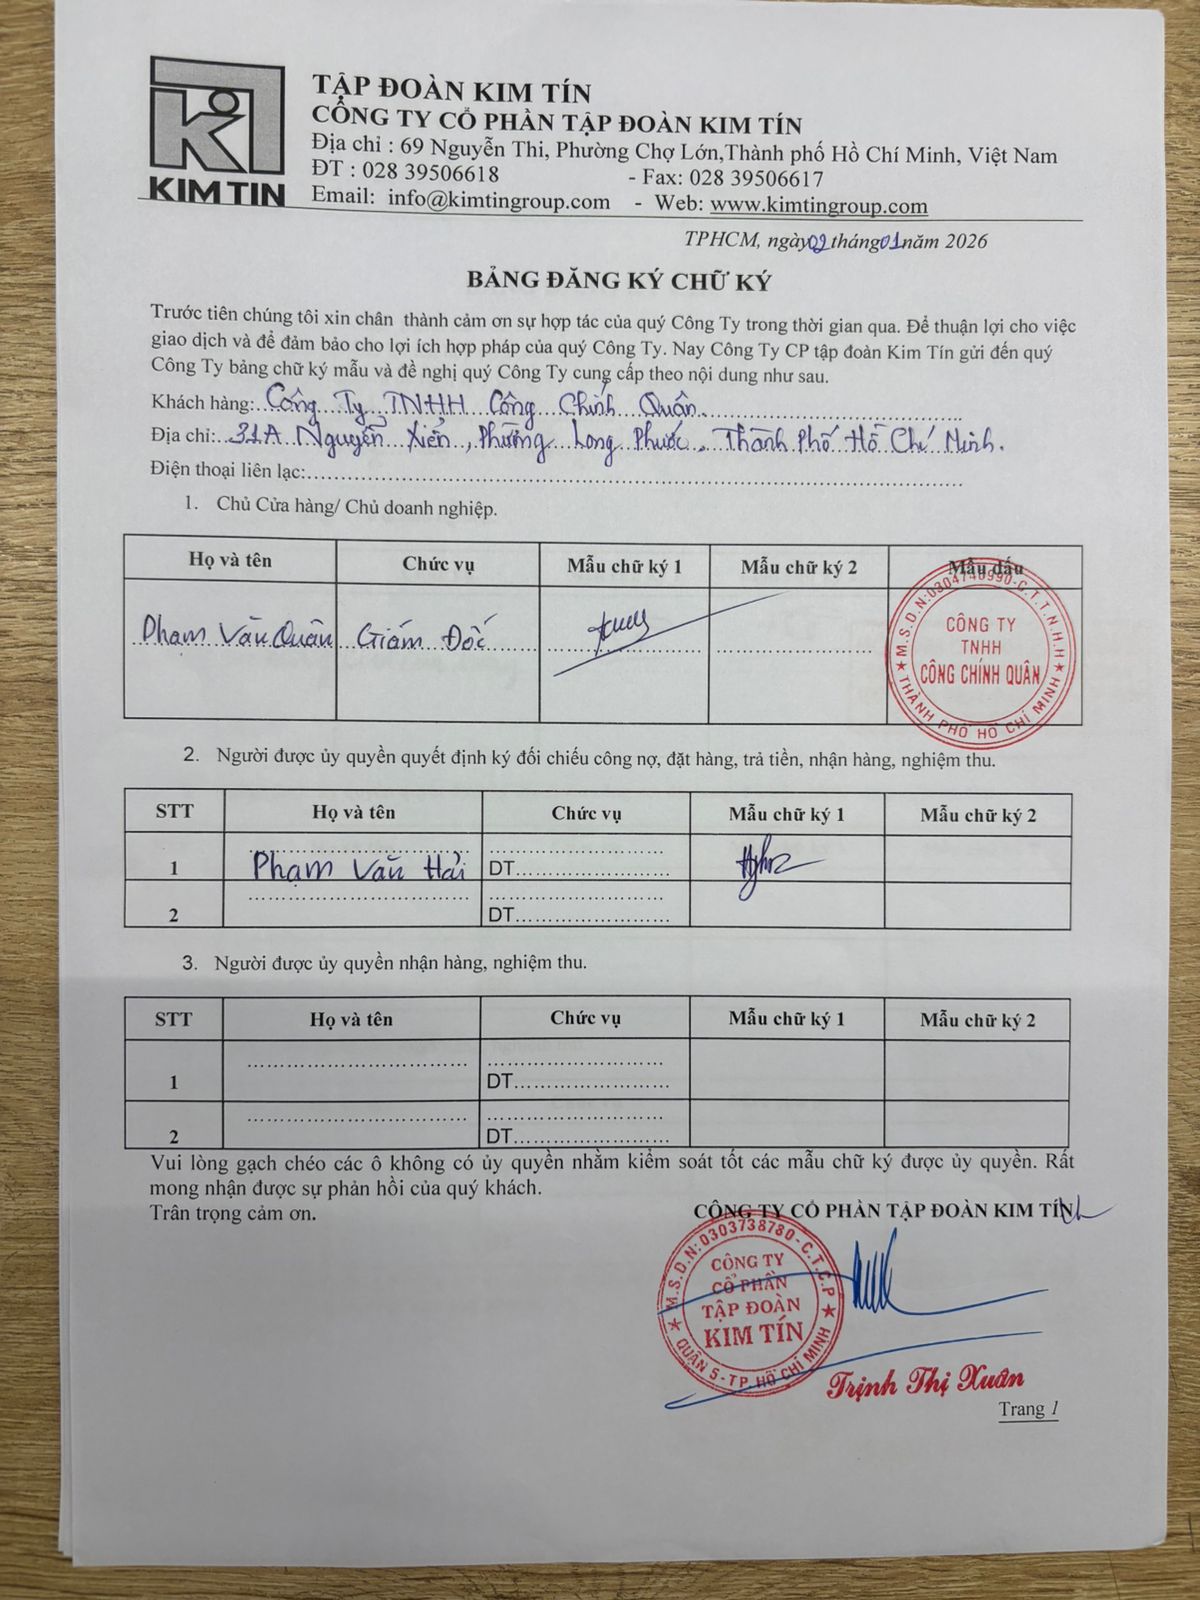 KIM TIN
TẬP ĐOÀN KIM TÍN
CÔNG TY CỔ PHẦN TẬP ĐOÀN KIM TÍN
Địa chỉ : 69 Nguyễn Thi, Phường Chợ Lớn,Thành phố Hồ Chí Minh, Việt Nam
ĐT : 028 39506618 - Fax: 028 39506617
Email: info@kimtingroup.com - Web: www.kimtingroup.com
TPHCM, ngày 02 tháng 01 năm 2026
BẢNG ĐĂNG KÝ CHỮ KÝ
Trước tiên chúng tôi xin chân thành cảm ơn sự hợp tác của quý Công Ty trong thời gian qua. Để thuận lợi cho việc
giao dịch và để đảm bảo cho lợi ích hợp pháp của quý Công Ty. Nay Công Ty CP tập đoàn Kim Tín gửi đến quý
Công Ty bảng chữ ký mẫu và đề nghị quý Công Ty cung cấp theo nội dung như sau.
Khách hàng: Công Ty TNHH Công Chính Quân.
Địa chỉ: 31A Nguyễn Xiển, Phường Long Phước, Thành Phố Hồ Chí Minh.
Điện thoại liên lạc:
1. Chủ Cửa hàng/ Chủ doanh nghiệp.
Họ và tên Chức vụ Mẫu chữ ký 1 Mẫu chữ ký 2 Mẫu dấu
Phạm Văn Quân Giám Đốc
M.S.D.N:0304740990-C.T.T.N.H.H
CÔNG TY
TNHH
CÔNG CHÍNH QUÂN
THÀNH PHỐ HỒ CHÍ MINH
2. Người được ủy quyền quyết định ký đối chiếu công nợ, đặt hàng, trả tiền, nhận hàng, nghiệm thu.
STT Họ và tên Chức vụ Mẫu chữ ký 1 Mẫu chữ ký 2
1 Phạm Văn Hải DT
2 DT
3. Người được ủy quyền nhận hàng, nghiệm thu.
STT Họ và tên Chức vụ Mẫu chữ ký 1 Mẫu chữ ký 2
1 DT
2 DT
Vui lòng gạch chéo các ô không có ủy quyền nhằm kiểm soát tốt các mẫu chữ ký được ủy quyền. Rất
mong nhận được sự phản hồi của quý khách.
Trân trọng cảm ơn.
CÔNG TY CỔ PHẦN TẬP ĐOÀN KIM TÍN
M.S.D.N:0303738780-C.T.C.P
CÔNG TY
CỔ PHẦN
TẬP ĐOÀN
KIM TÍN
QUẬN 5-TP.HỒ CHÍ MINH
Trịnh Thị Xuân
Trang 1